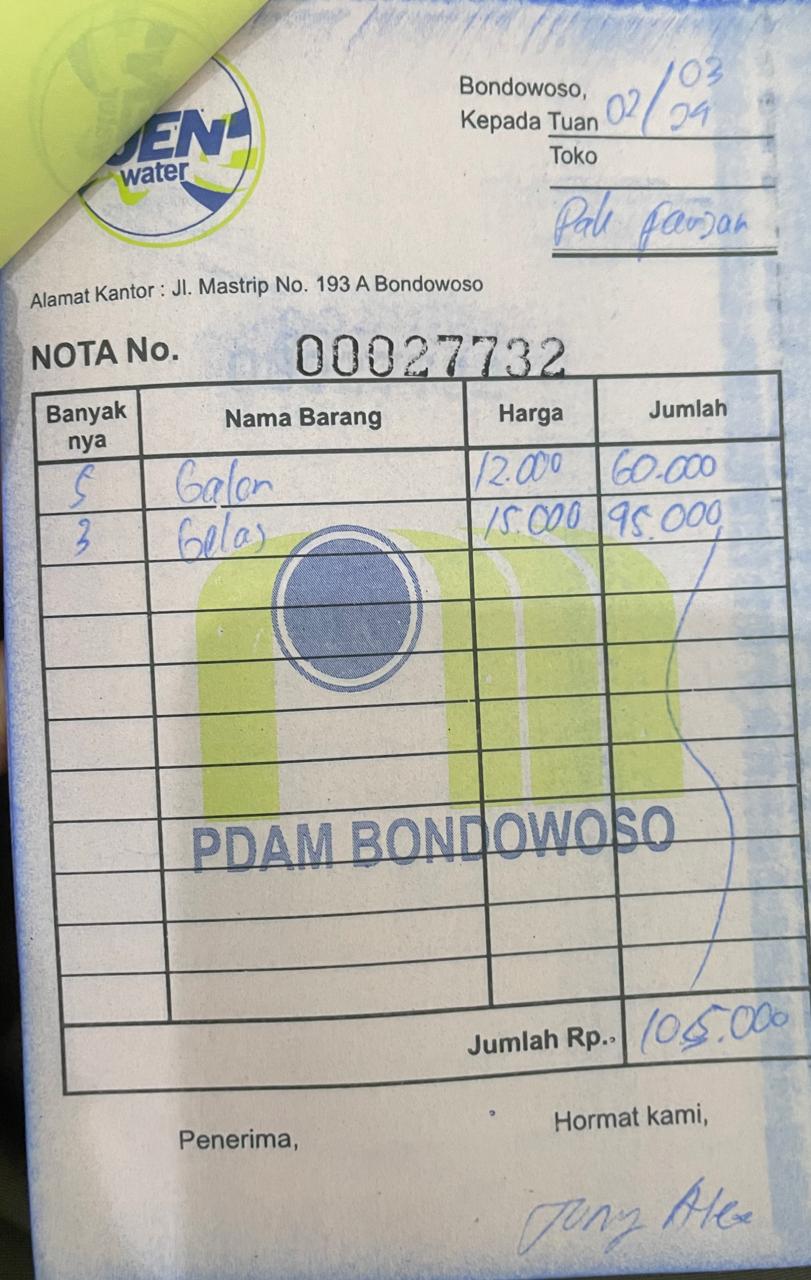 JEN
water
Bondowoso, 02/03
Kepada Tuan 24
Toko
Pak
Alamat Kantor : Jl. Mastrip No. 193 A Bondowoso
NOTA No. 00027732
Banyak nya Nama Barang Harga Jumlah
5 Galon 12.000 60.000
3 Gelas 15.000 45.000
PDAM BONDOWOSO
Jumlah Rp.. 105.000
Penerima, Hormat kami,
Jony Alex